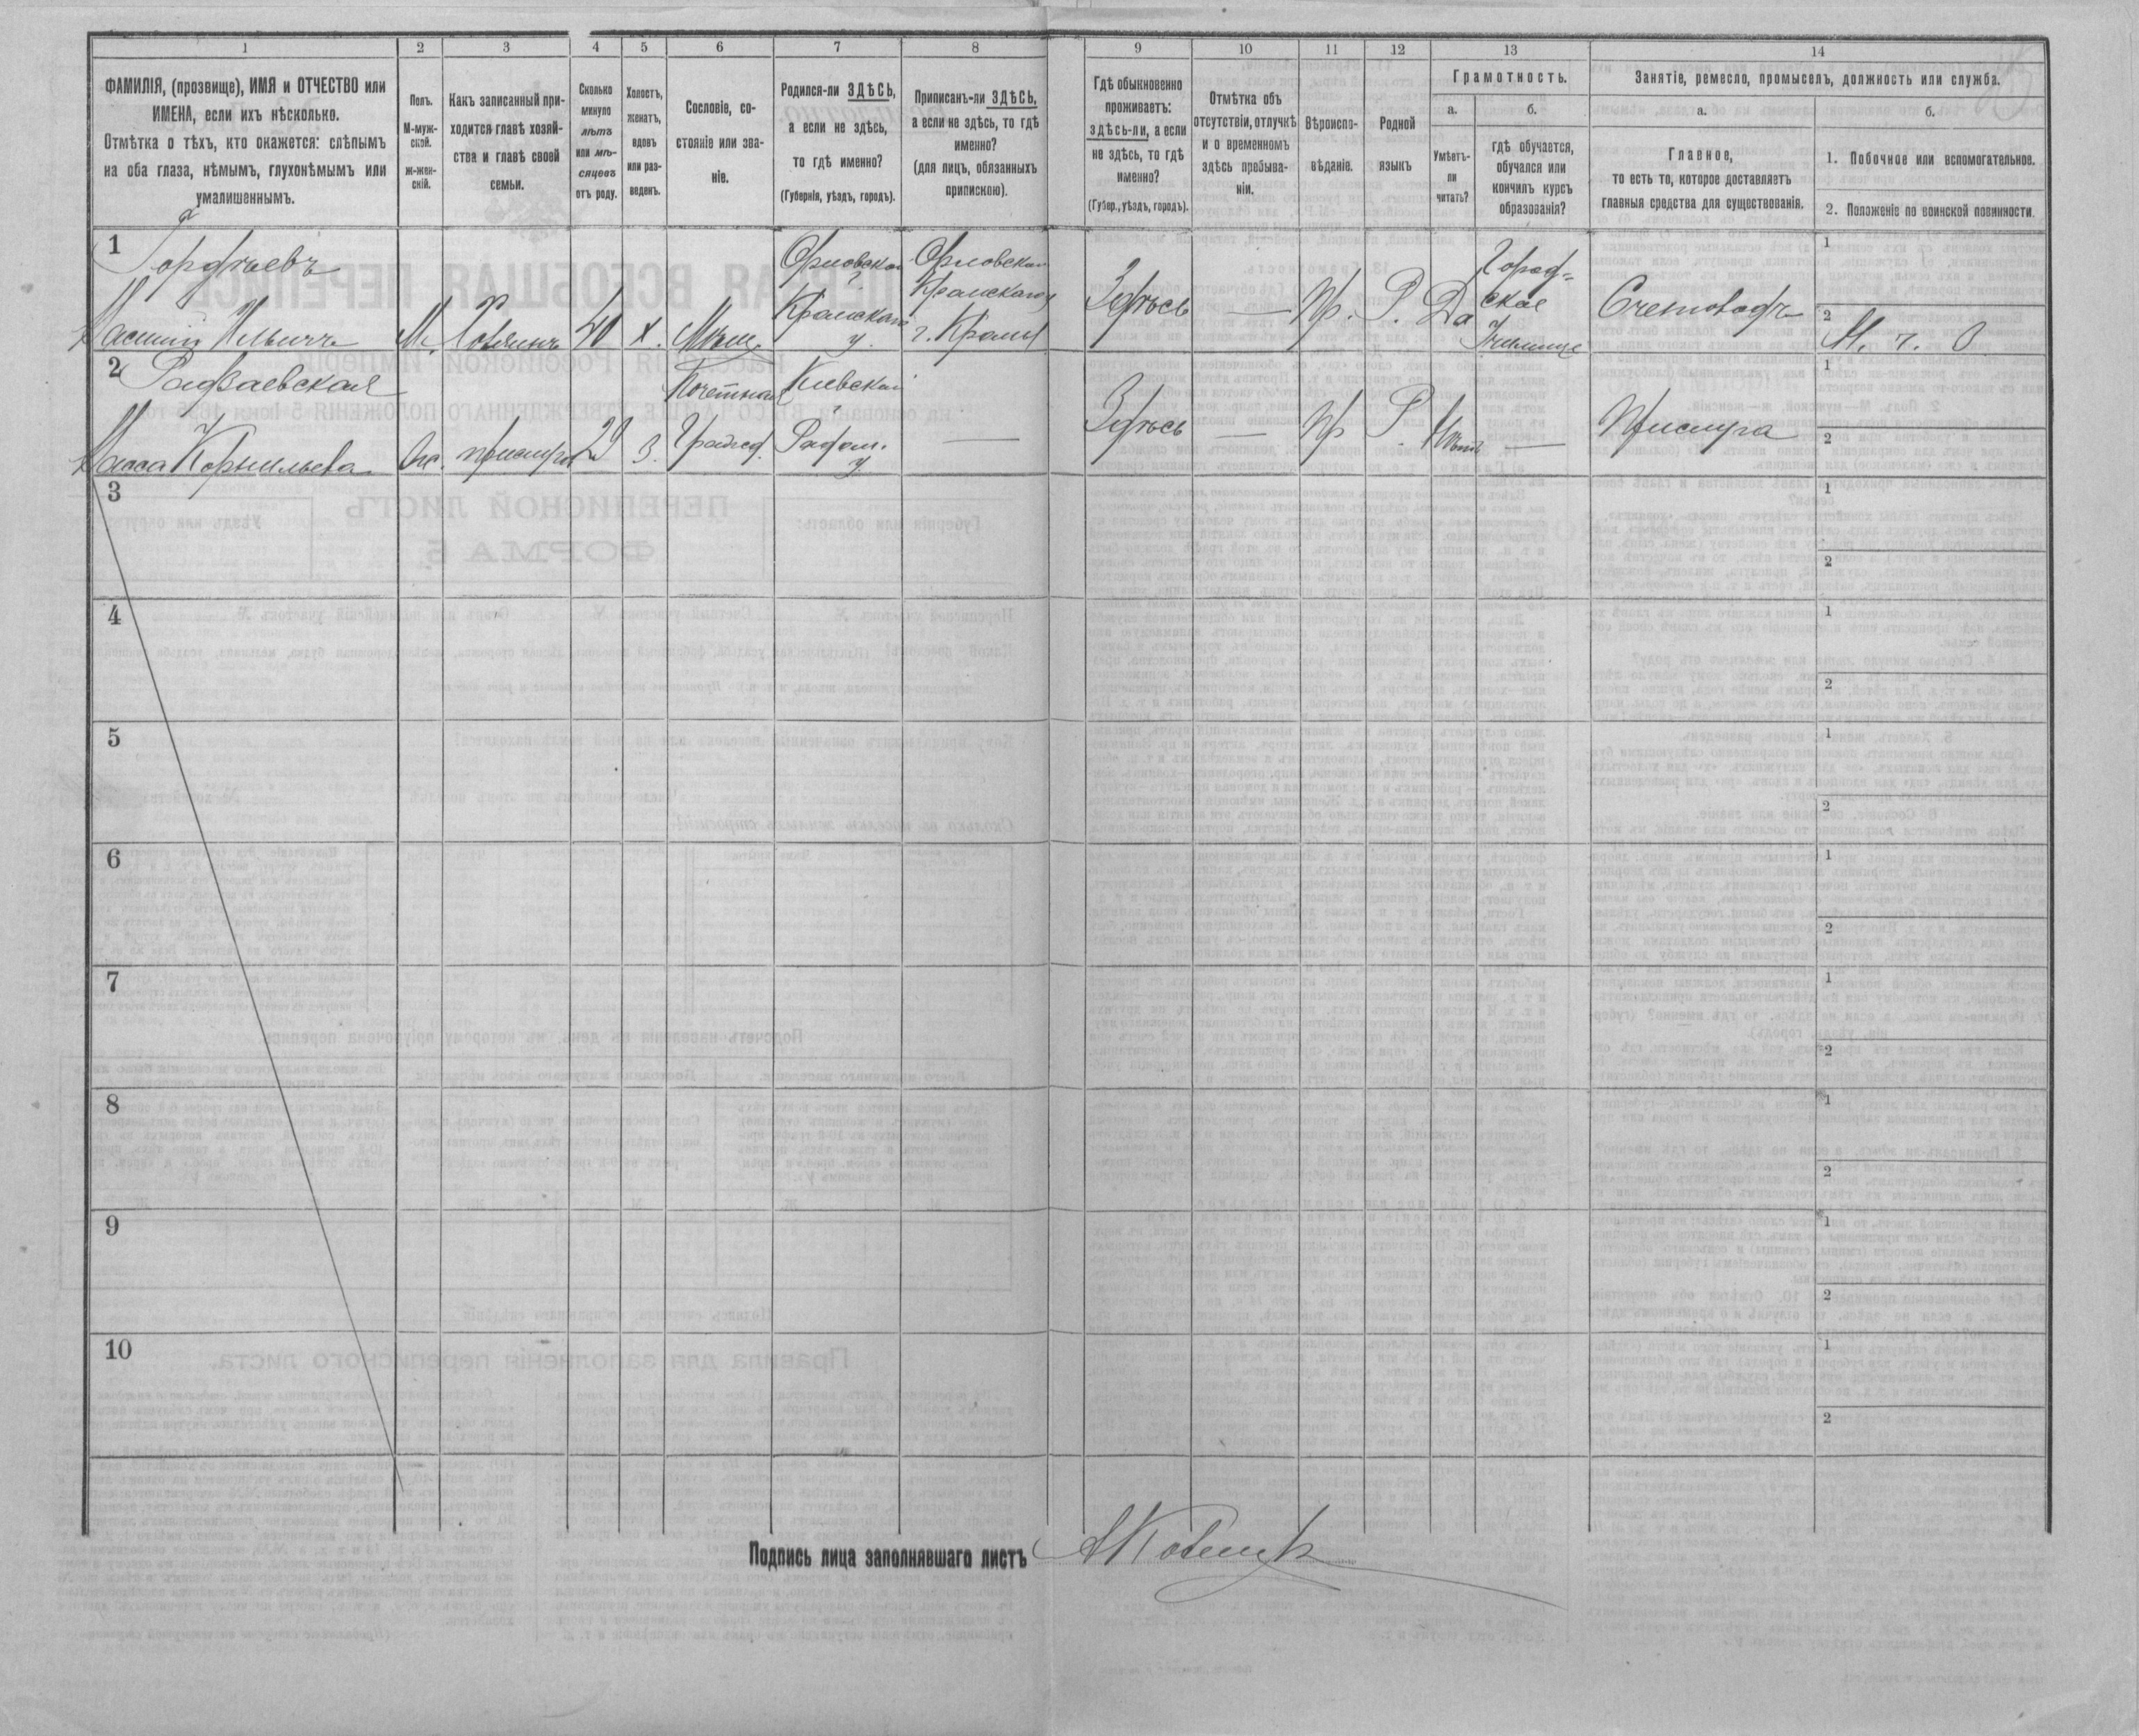 1 2 3 4 5 6 7 8 9 10 11 12 13 14
ФАМИЛІЯ, (прозвище), ИМЯ и ОТЧЕСТВО или
ИМЕНА, если ихъ нѣсколько.
Отмѣтка о тѣхъ, кто окажется: слѣпымъ
на оба глаза, нѣмымъ, глухонѣмымъ или
умалишеннымъ.
Полъ.
М-муж-
ской.
ж-жен-
скій.
Какъ записанный при-
ходится главѣ хозяй-
ства и главѣ своей
семьи.
Сколько
минуло
лѣтъ
или мѣ-
сяцевъ
отъ роду.
Холостъ,
женатъ,
вдовъ
или раз-
веденъ.
Сословіе, со-
стояніе или зва-
ніе.
Родился-ли ЗДѢСЬ,
а если не здѣсь,
то гдѣ именно?
(Губернія, уѣздъ, городъ).
Приписанъ-ли ЗДѢСЬ,
а если не здѣсь, то гдѣ
именно?
(для лицъ, обязанныхъ
припискою).
Гдѣ обыкновенно
проживаетъ:
здѣсь-ли, а если
не здѣсь, то гдѣ
именно?
(Губер., уѣздъ, городъ).
Отмѣтка объ
отсутствіи, отлучкѣ
и о временномъ
здѣсь пребыва-
ніи.
Вѣроиспо-
вѣданіе.
Родной
языкъ
Грамотность.
а. б.
Умѣетъ-
ли
читать?
гдѣ обучается,
обучался или
кончилъ курсъ
образованія?
Занятіе, ремесло, промыселъ, должность или служба.
а. б.
Главное,
то есть то, которое доставляетъ
главныя средства для существованія.
1. Побочное или вспомогательное.
2. Положеніе по воинской повинности.
1
Гордѣевъ
Василій Ильичъ
М. Хозяинъ 40 х. Мѣщ.
Орловской
г.
Кромскаго
у.
Орловской
Кромскаго у
г. Кромы
Здѣсь — Пр. Р. Да
Город-
ское
Училище
Счетоводъ
1
2 М. г. О
2
Радзаевская
Раиса Корнильева
Ж. прислуга 29 З.
Почетная
Гражд.
Кіевской
г.
Радом.
у.
— Здѣсь — Пр Р. Нѣтъ —
Прислуга
1
2
3 1
2
4 1
2
5 1
2
6 1
2
7 1
2
8 1
2
9 1
2
10 1
2
Подпись лица заполнявшаго листъ